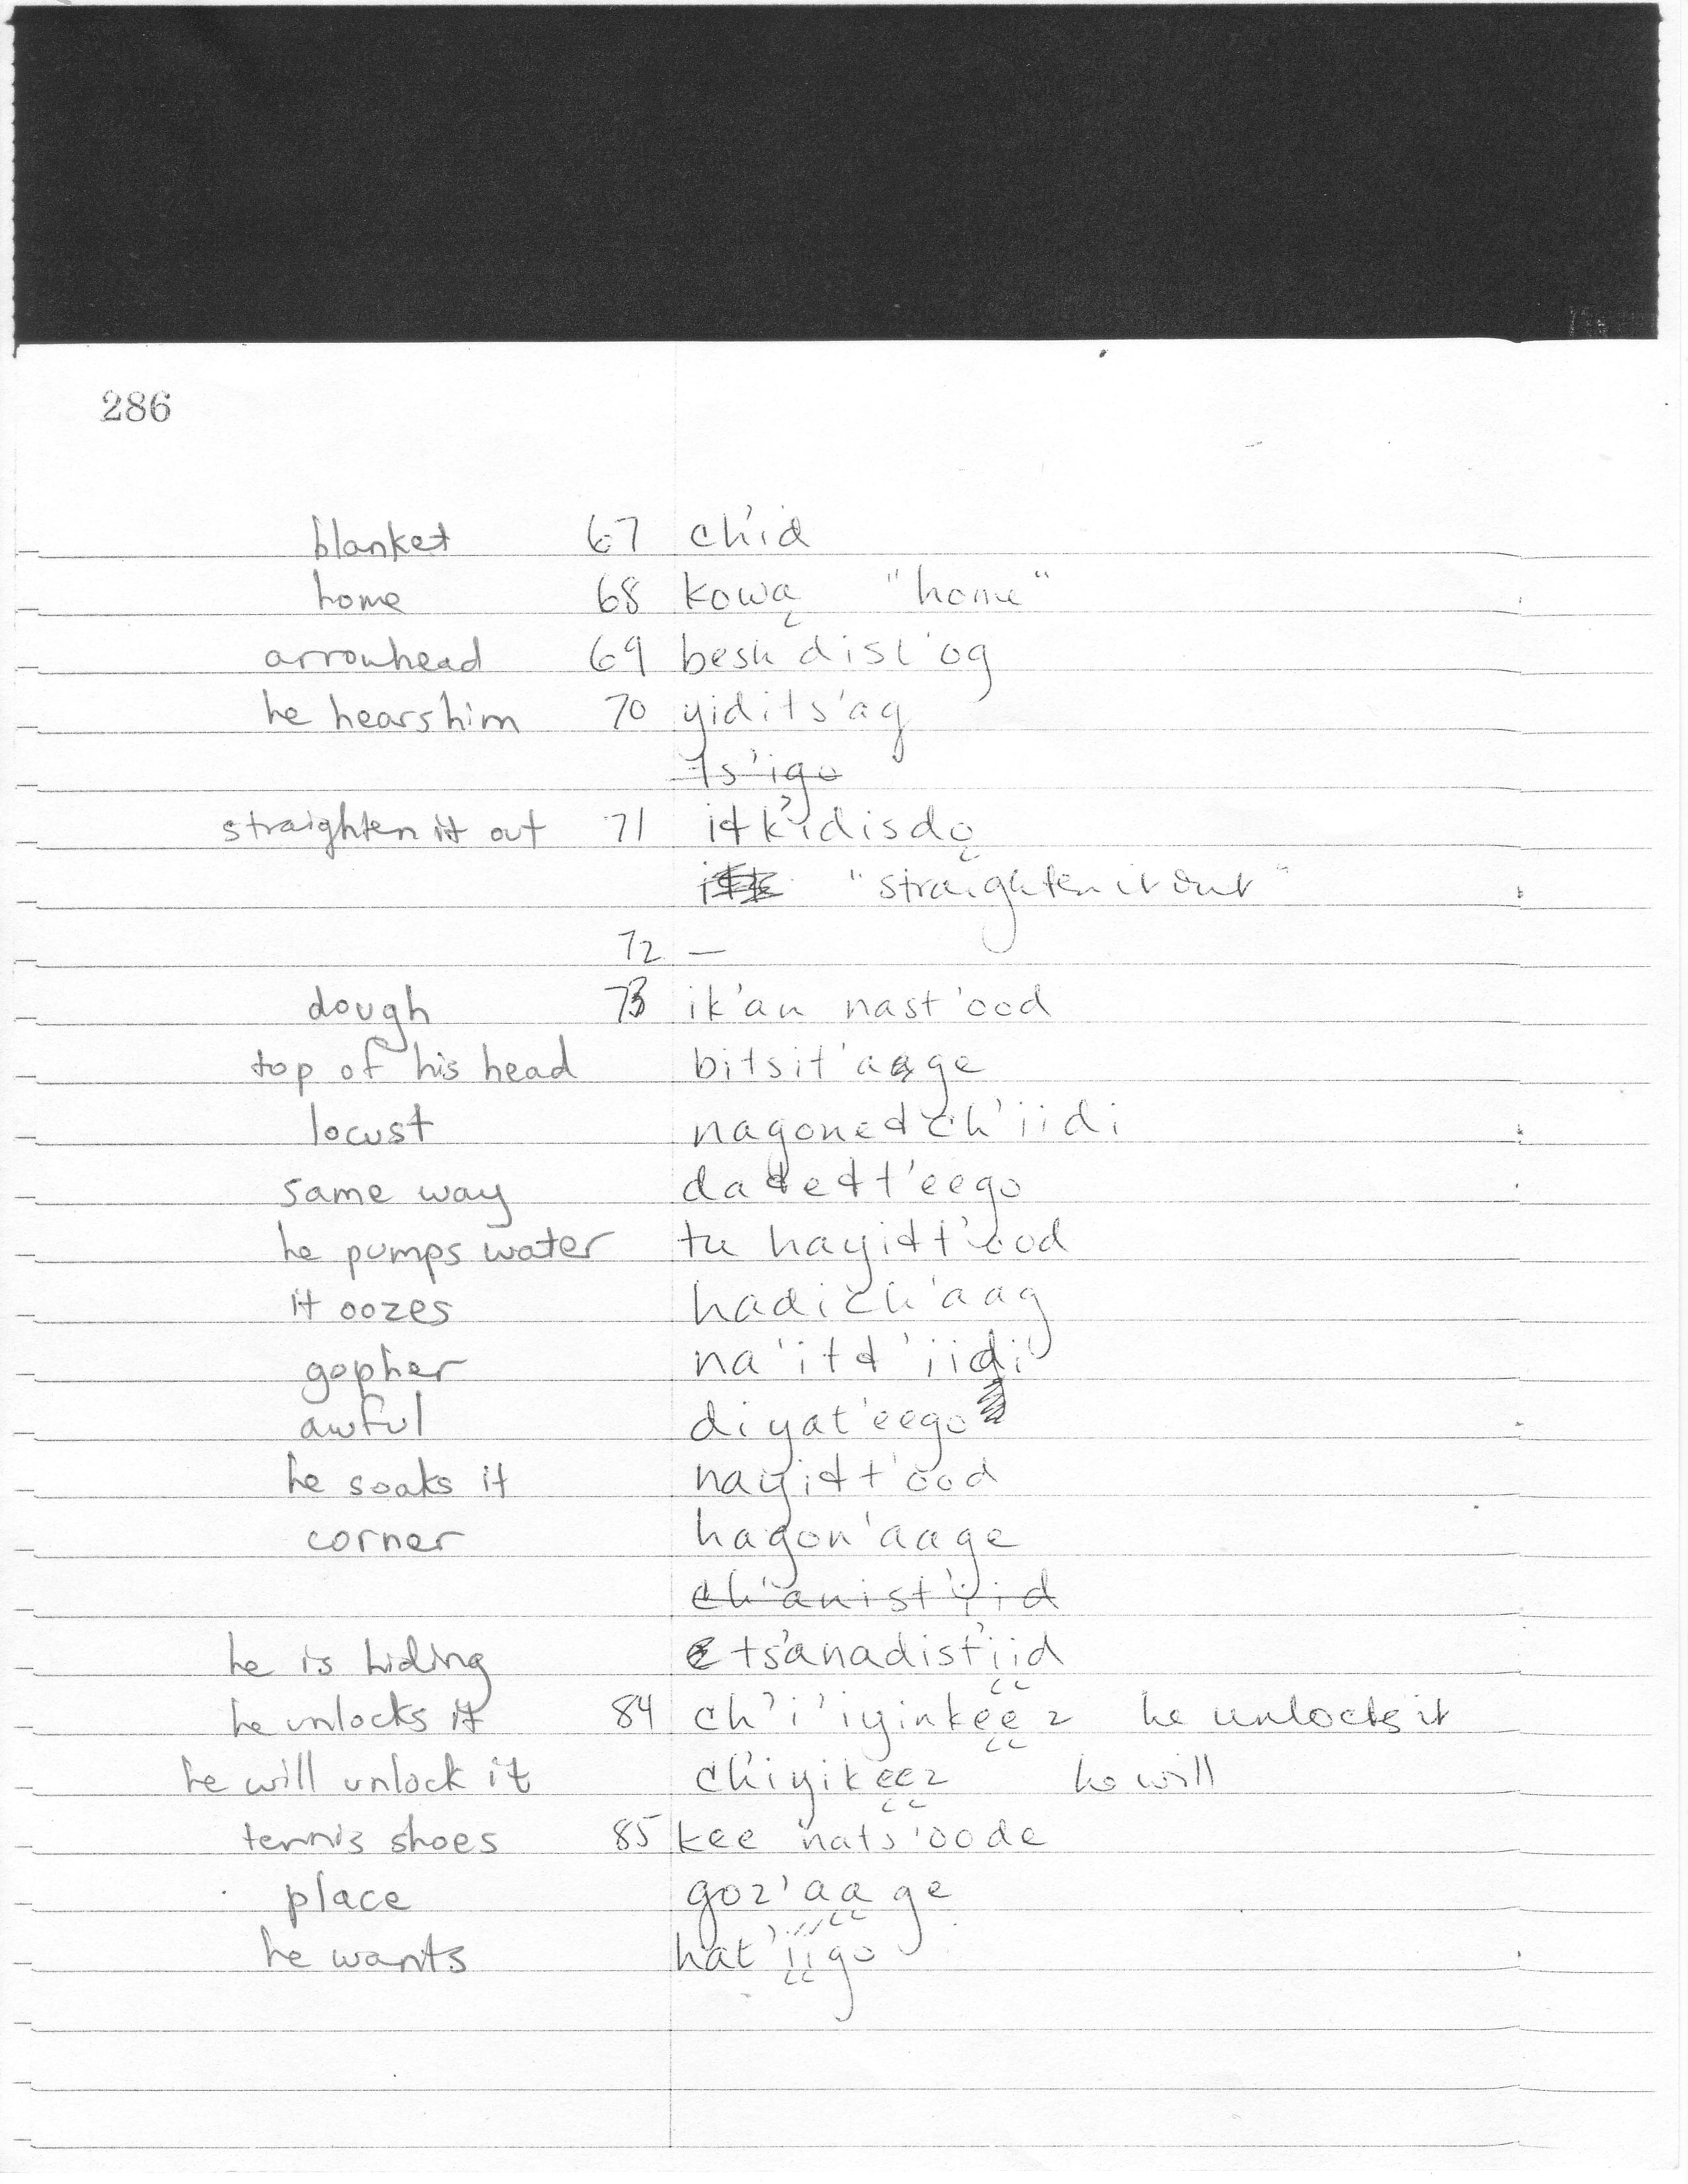 286
blanket 67 ch'id
home 68 kową "home"
arrowhead 69 besh dist'og
he hears him 70 yidits'ag
ts'igo
straighten it out 71 iłk'idisdǫ
"straighten it out"
72 —
dough 73 ik'an nast'ood
top of his head bitsit'aage
locust nagonełch'iidi
same way dałełt'eego
he pumps water tu hayiłt'ood
it oozes hadich'aag
gopher na'itł'iidi
awful diyat'eego
he soaks it nayiłt'ood
corner hagon'aage
ch'anist'iid
he is hiding ts'anadist'įįd
he unlocks it 84 ch'i'iyinkęęz he unlocks it
he will unlock it ch'iyikęęz he will
tennis shoes 85 kee nats'oode
place goz'ąąge
he wants hat'įįgo